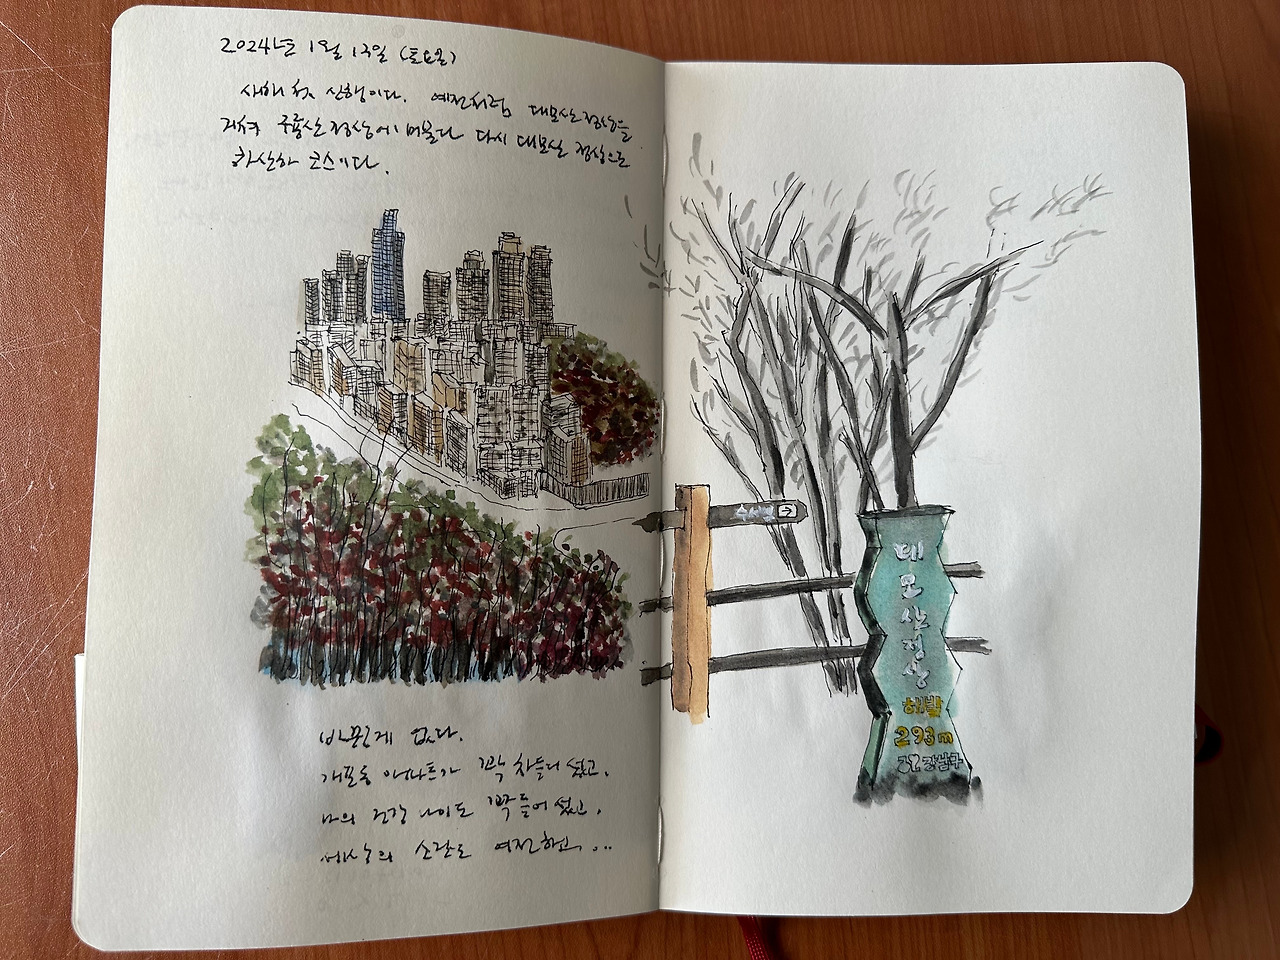 2024년 1월 13일 (토요일)
새해 첫 산행이다. 예전처럼 대모산 정상을
거쳐 구룡산 정상에 머물다 다시 대모산 정상으로
하산하 코스이다.
바뀐게 없다.
개포동 아파트가 꽉 차들어 섰고,
나의 건강 나이도 꽉 들어 섰고,
세상의 소란도 여전하고, ...
수서역 →
대
모
산
정
상
해발
293m
강남구